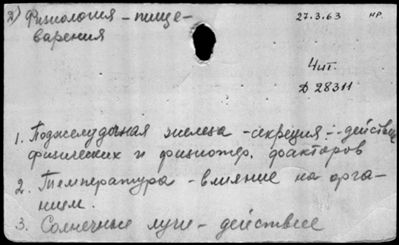 2) Физиология - пище-
варения
27.3.63 нр.
Чит.
Д 28311
1. Поджелудочная железа - секреция - действие
физических и физиотер. факторов
2. Температура - влияние на орга-
низм.
3. Солнечные лучи - действие